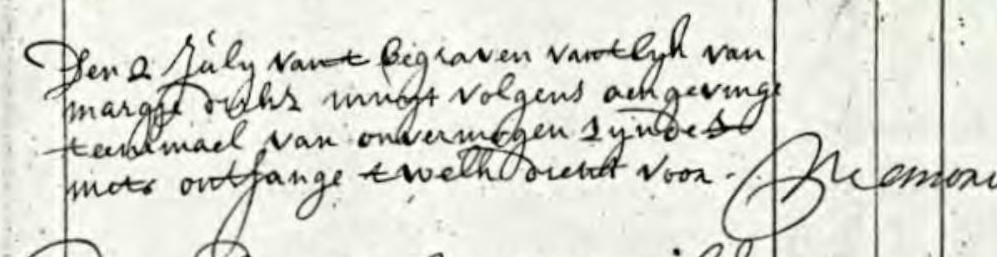 Den 2 July vant begraven vant lyk van
margje dirks volgens aengevinge
teenemael van onvermogen synde
niets ontfange twelk dient voor - Memori